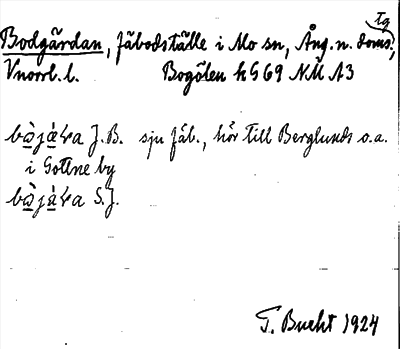 Tg
Bodgårdan, Fäbodställe i Mo sn, Ång. n. doms.,
Vnorrl. l. Bogölen hS69 NÄ A3
J.B. sju fäb., hör till Berglunds o.a.
i Gottne by
S.J.
T. Bucht 1924